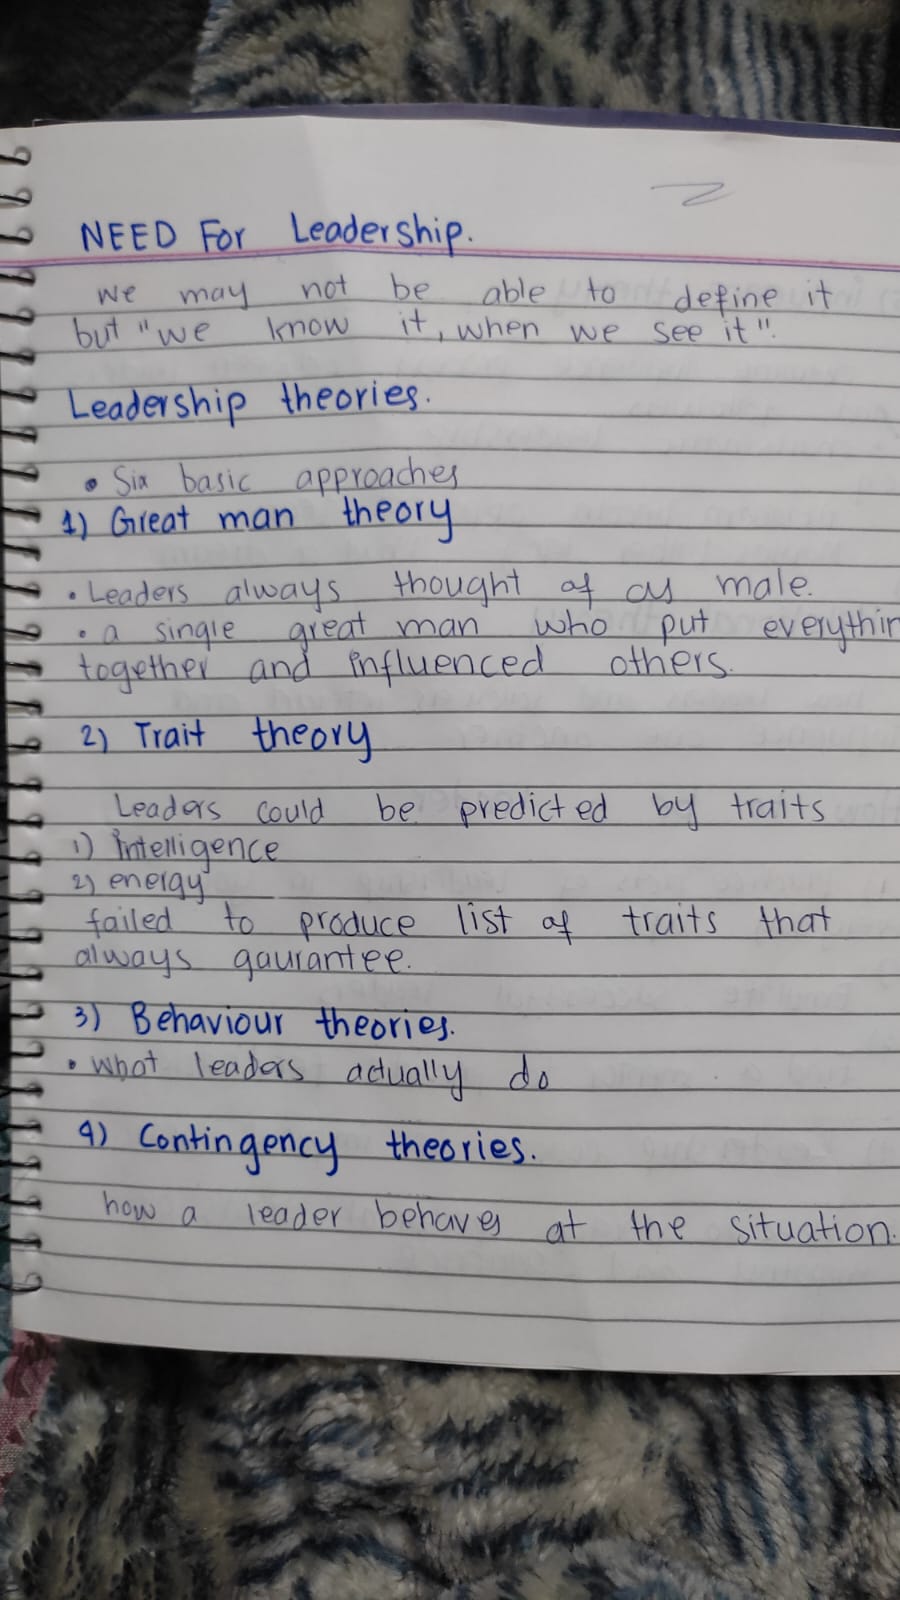 NEED For Leadership.
we may not be able to define it
but "we know it, when we see it".
Leadership theories.
• Six basic approaches
1) Great man theory
• Leaders always thought of as male.
• a single great man who put everythin
together and influenced others.
2) Trait theory
Leaders could be predicted by traits
1) intelligence
2) energy
failed to produce list of traits that
always gaurantee.
3) Behaviour theories.
• what leaders actually do
4) Contingency theories.
how a leader behaves at the situation.